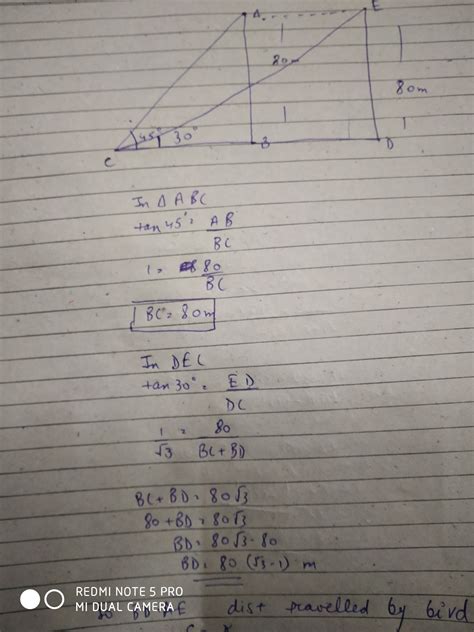 A E
80m
80m
45° 30°
C B D
In Δ ABC
tan 45° = AB
BC
1 = 80
BC
BC = 80m
In DEC
tan 30° = ED
DC
1 = 80
√3 BC + BD
BC + BD = 80√3
80 + BD = 80√3
BD = 80√3 - 80
BD = 80 (√3 - 1) m
dist travelled by bird
REDMI NOTE 5 PRO
MI DUAL CAMERA